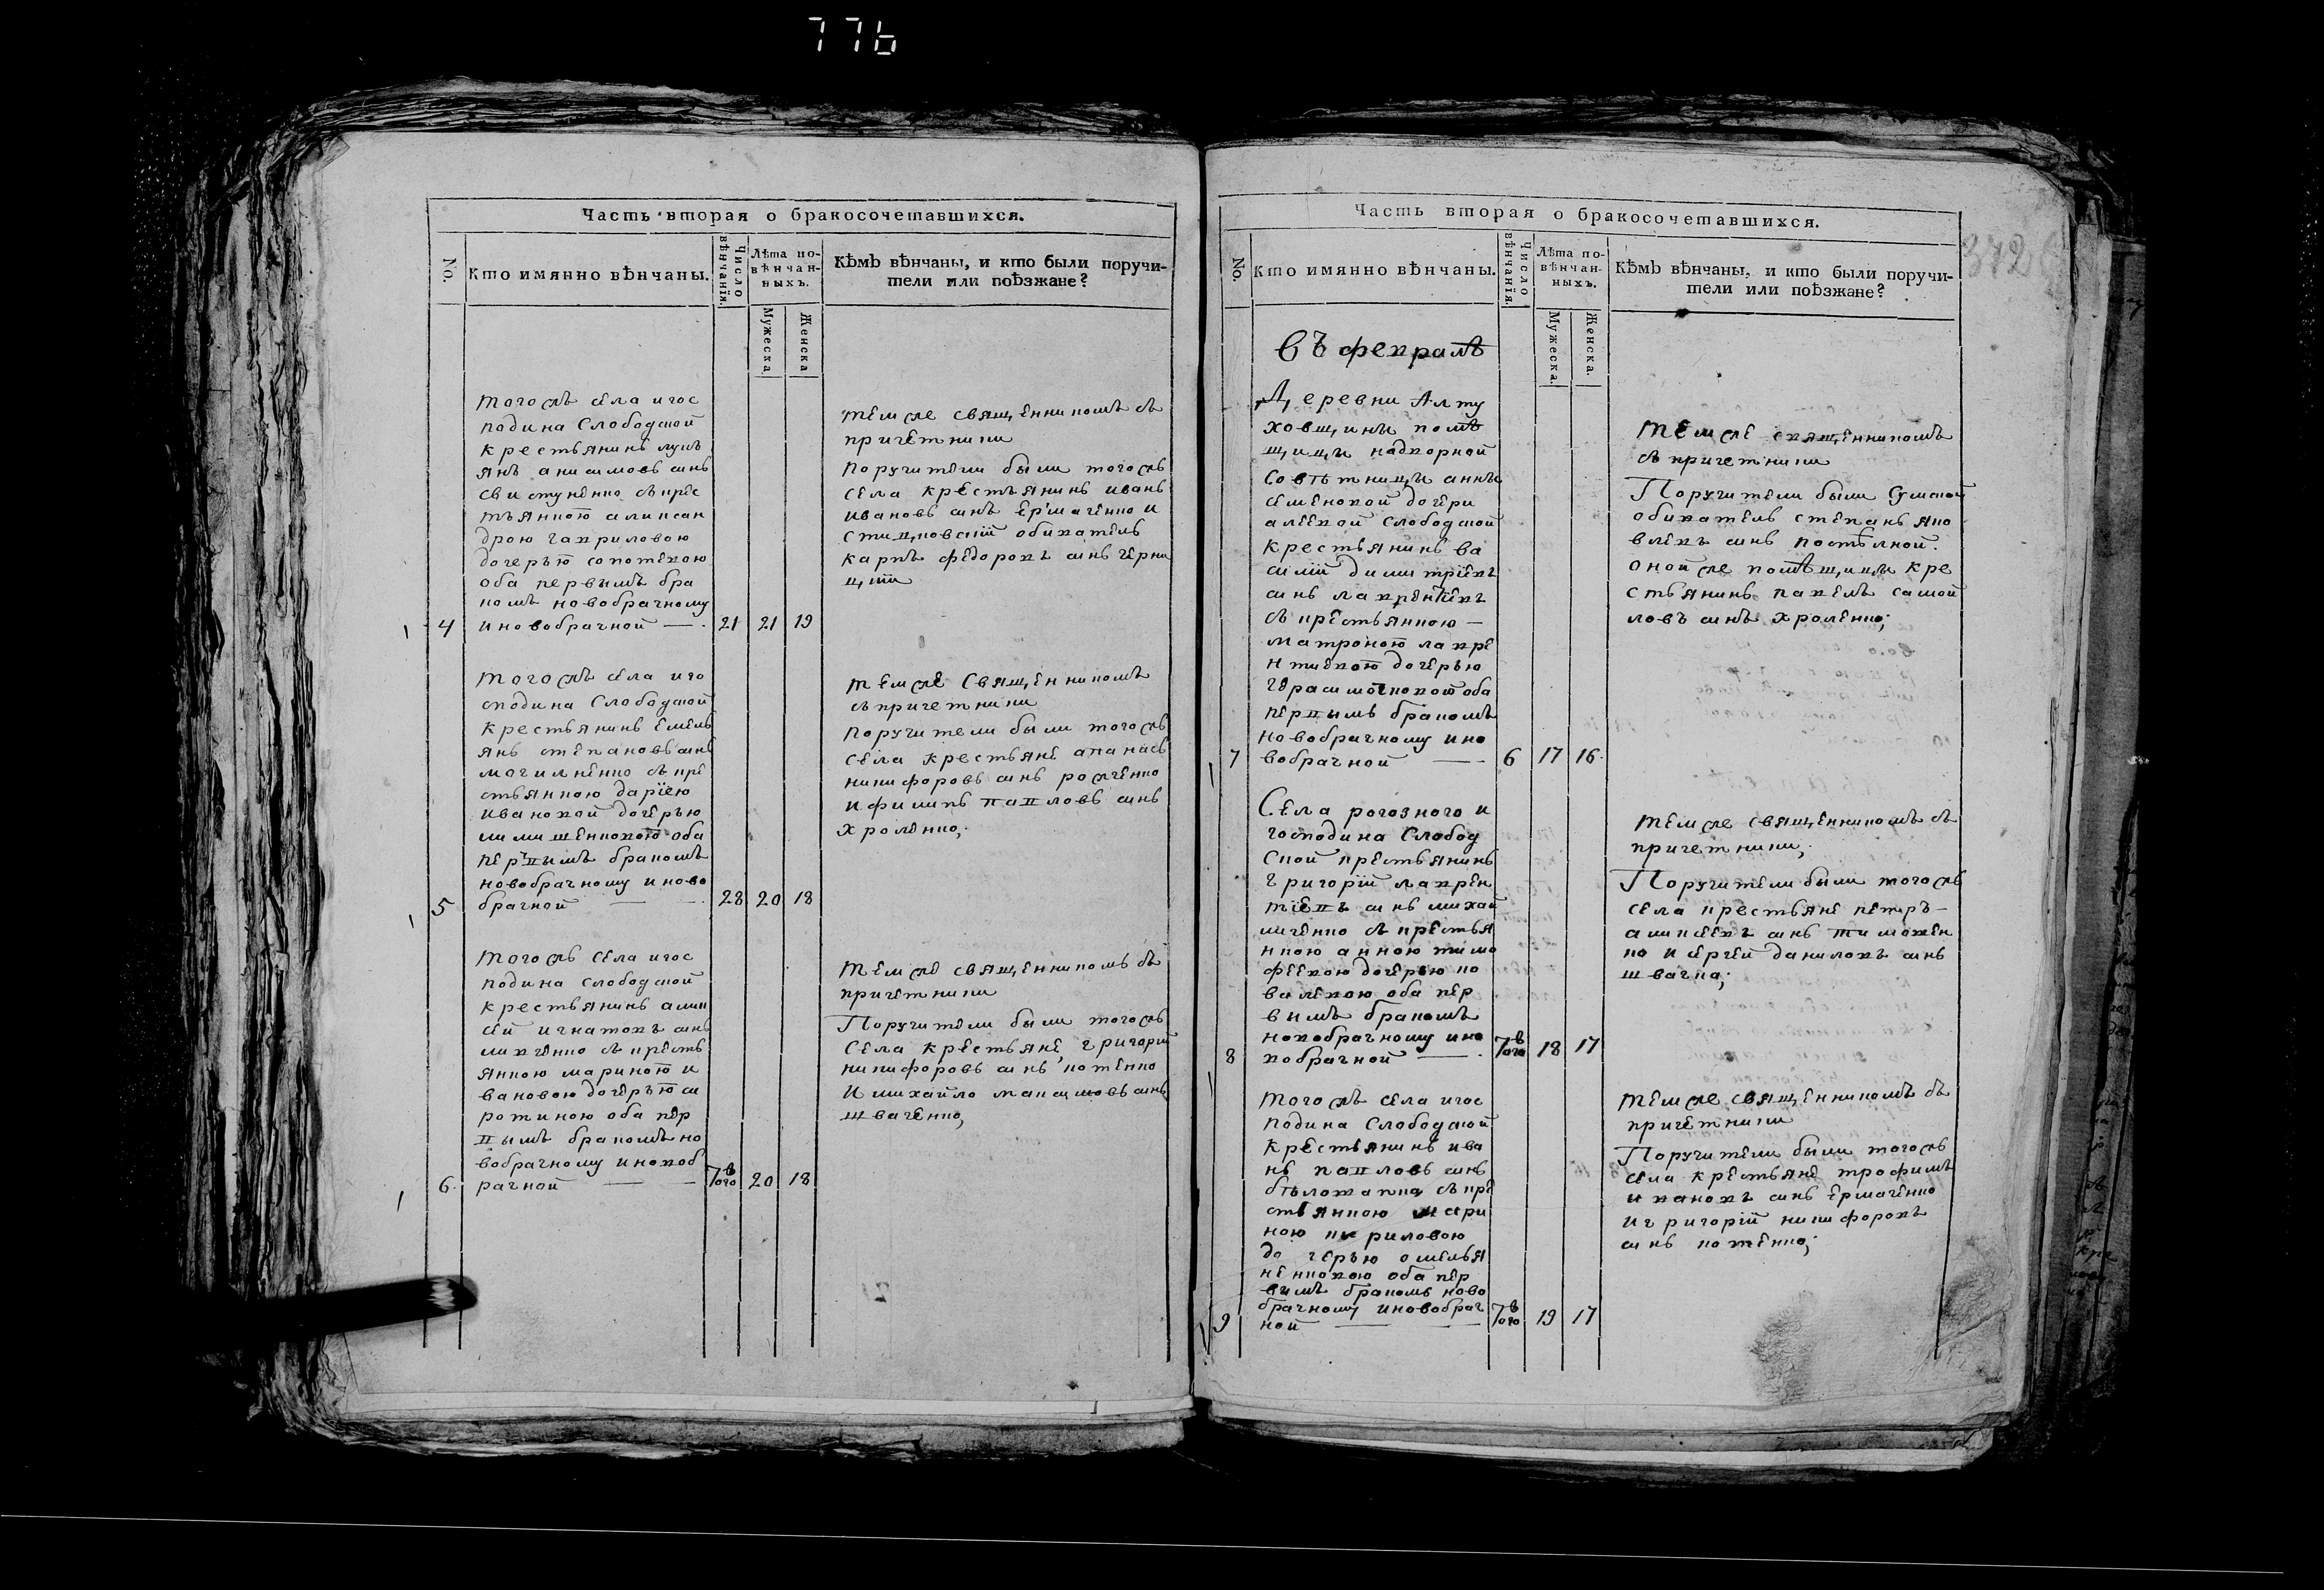 776
Часть вторая о бракосочетавшихся.
No.
Кто имянно вѣнчаны.
Число вѣнчанія.
Лѣта по-
вѣнчан-
ныхъ.
Мужеска
Женска
Кѣмъ вѣнчаны, и кто были поручи-
тели или поѣзжане?
тогожъ села игос
подина Слободской
крестьянинъ лукъ
янъ анисимовъ синъ
свистуненко съкрес
тъянкою аликсан
дрою гавриловою
дочерью
оба первымъ бра
комъ новобрачному
4 иновобрачной — 21 21 19
темже священникомъ съ
причетники
поручители были тогожъ
села крестьянинъ иванъ
ивановъ синъ ермаченко и
обиватель
карпъ федоровъ синъ черни
цкій
тогожъ села иго
сподина Слободской
крестьянинъ емель
янъ степановъ синъ
могилненко съ кре
стьянкою даріею
ивановой дочерью
оба
первымъ бракомъ
новобрачному иново
5 брачной — 28 20 18
темже Священникомъ
съпричетники
поручители были тогожъ
села крестьяне апанасъ
никифоровъ синъ
ифилипъ павловъ синъ
хроленко;
тогожъ села игос
подина слободской
крестьянинъ алик
сей игнатовъ синъ
съ кресть
янкою мариною и
вановою дочерью си
ротиною оба пер
вымъ бракомъ но
вобрачному иновоб
6. рачной — 7в того 20 18
темже священникомъ съ
причетники
Поручители были тогожъ
Села крестьяне, григорій
никифоровъ синъ котенко
и михайло максимовъ синъ
шваченко,
Часть вторая о бракосочетавшихся.
372
No.
Кто имянно вѣнчаны.
Число вѣнчанія.
Лѣта по-
вѣнчан-
ныхъ.
Мужеска.
Женска.
Кѣмъ вѣнчаны, и кто были поручи-
тели или поѣзжане?
Въ февралѣ
Деревни Алту
ховщини помѣ
щици надворной
Совѣтници анни
семеновой дочери
алеевой Слободской
крестьянинъ ва
силій димитріевъ
синъ лаврентіевъ
съ крестьянкою —
матроною лавре
нтиевою дочерью
оба
первымъ бракомъ
новобрачному ино
7 вобрачной — 6 17 16.
темже священникомъ
съ причетники
Поручители были Сумской
обиватель степанъ яко
влевъ синъ постѣлной.
оной же помѣщици кре
стьянинъ павелъ самой
ловъ синъ хроленко;
Села рогозного и
господина Слобод
ской крестьянинъ
григорій лаврен
тіевъ синъ михай
личенко съ крестья
нкою анною тимо
феевою дочерью ко
валевою оба пер
вымъ бракомъ
новобрачному ино
8 вобрачной — 7в того 18 17
темже священникомъ съ
причетники;
Поручители были тогожъ
села крестьяне петръ —
аликсеевъ синъ тимошен
ко и сергей даниловъ синъ
швачка;
тогожъ села игос
подина Слободской
крестьянинъ ива
нъ павловъ синъ
съ кре
стьянкою мари
ною кириловою
дочерью омелья
ненковою оба пер
вимъ бракомъ ново
брачному иновобрач
9 ной — 7в того 19 17
темже священникомъ съ
причетники
Поручители были тогожъ
села крестьяне трофимъ
ивановъ синъ ермаченко
и григорій никифоровъ
синъ котенко;